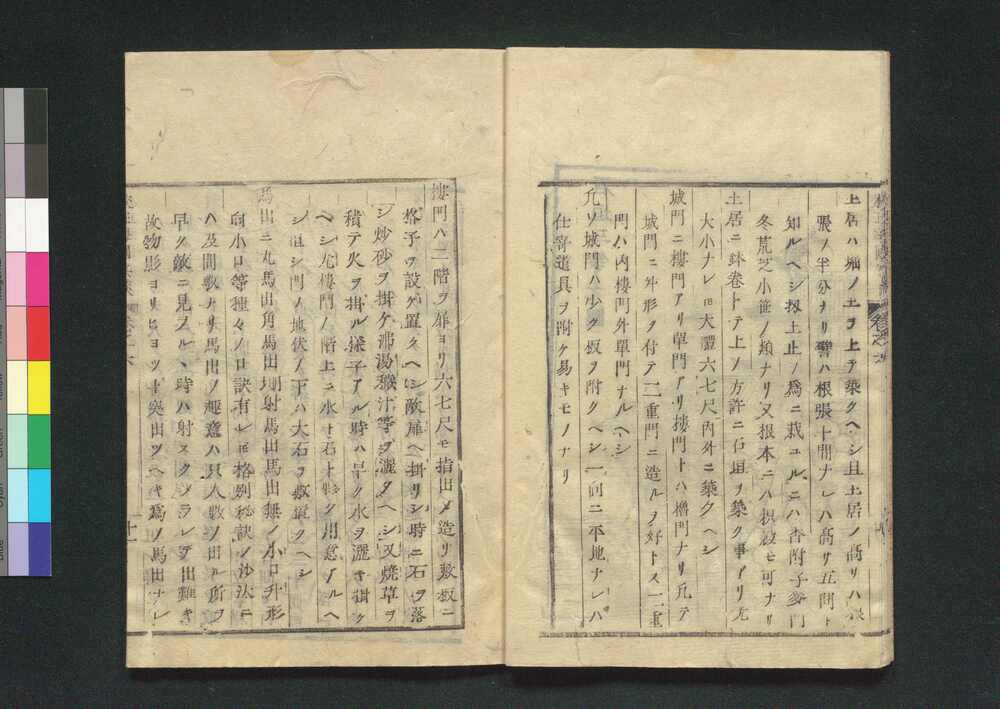 土居ハ堀ノ土ヲ上テ築クヘシ且土居ノ高サハ根
張ノ半分ナリ譬ハ根張十間ナレハ高サ五間ト
知ルヘシ扨土止ノ爲ニ栽ユルニハ香附子麥門
冬荒芝小笹ノ類ナリ又根本ニハ枳殻モ可ナリ
土居ニ鉢巻トテ上ノ方許ニ石垣ヲ築ク事アリ尤
大小ナレ𪜈大體六七尺内外ニ築クヘシ
城門ニ樓門アリ單門アリ樓門トハ櫓門ナリ凡テ
城門ニ外形ヲ付テ二重門ニ造ルヲ好トス二重
門ハ内樓門外單門ナルヘシ
凡ソ城門ハ少ク板ヲ附クヘシ一向ニ平地ナレハ
仕寄道具ヲ附ケ易キモノナリ
樓門ハ二階ヲ扉ヨリ六七尺モ指出メ造リ敷板ニ
格子ヲ設ケ置クヘシ敵扉ヘ掛リシ時ニ石ヲ落
シ炒砂ヲ掛ケ沸湯糞汁等ヲ灑クヘシ又焼草ヲ
積テ火ヲ掛ル樣子アル時ハ早ク水ヲ灑キ掛ク
ヘシ尤樓門ノ階上ニ水ト石ト夥ク用意アルヘ
シ但シ門ノ地伏ノ下ハ大石ヲ敷置クヘシ
馬出ニ丸馬出角馬出堋射馬出馬出無ノ小口升形
向小口等種々ノ口訣有レ𪜈格別秘訣ノ沙汰ニ
ハ及間敷ナリ馬出ノ趣意ハ只人數ノ出ル所ヲ
早ク敵ニ見ラルヽ時ハ射スクメラレテ出難キ
故物影ヨリヒヨツト突出ツヘキ爲ノ馬出ナレ